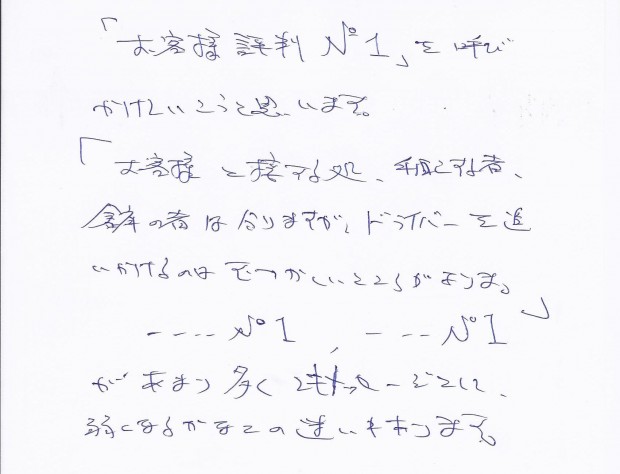 「お客様評判 №1」を呼び
かけたいとうと思います。
「お客様と接する処、する者、
の者は分りますが、ドライバーを追
いかけるのはむつかしいところがあります。」
---- №1 , --- №1
があまり多く
弱くなるかなとの迷いもあります。